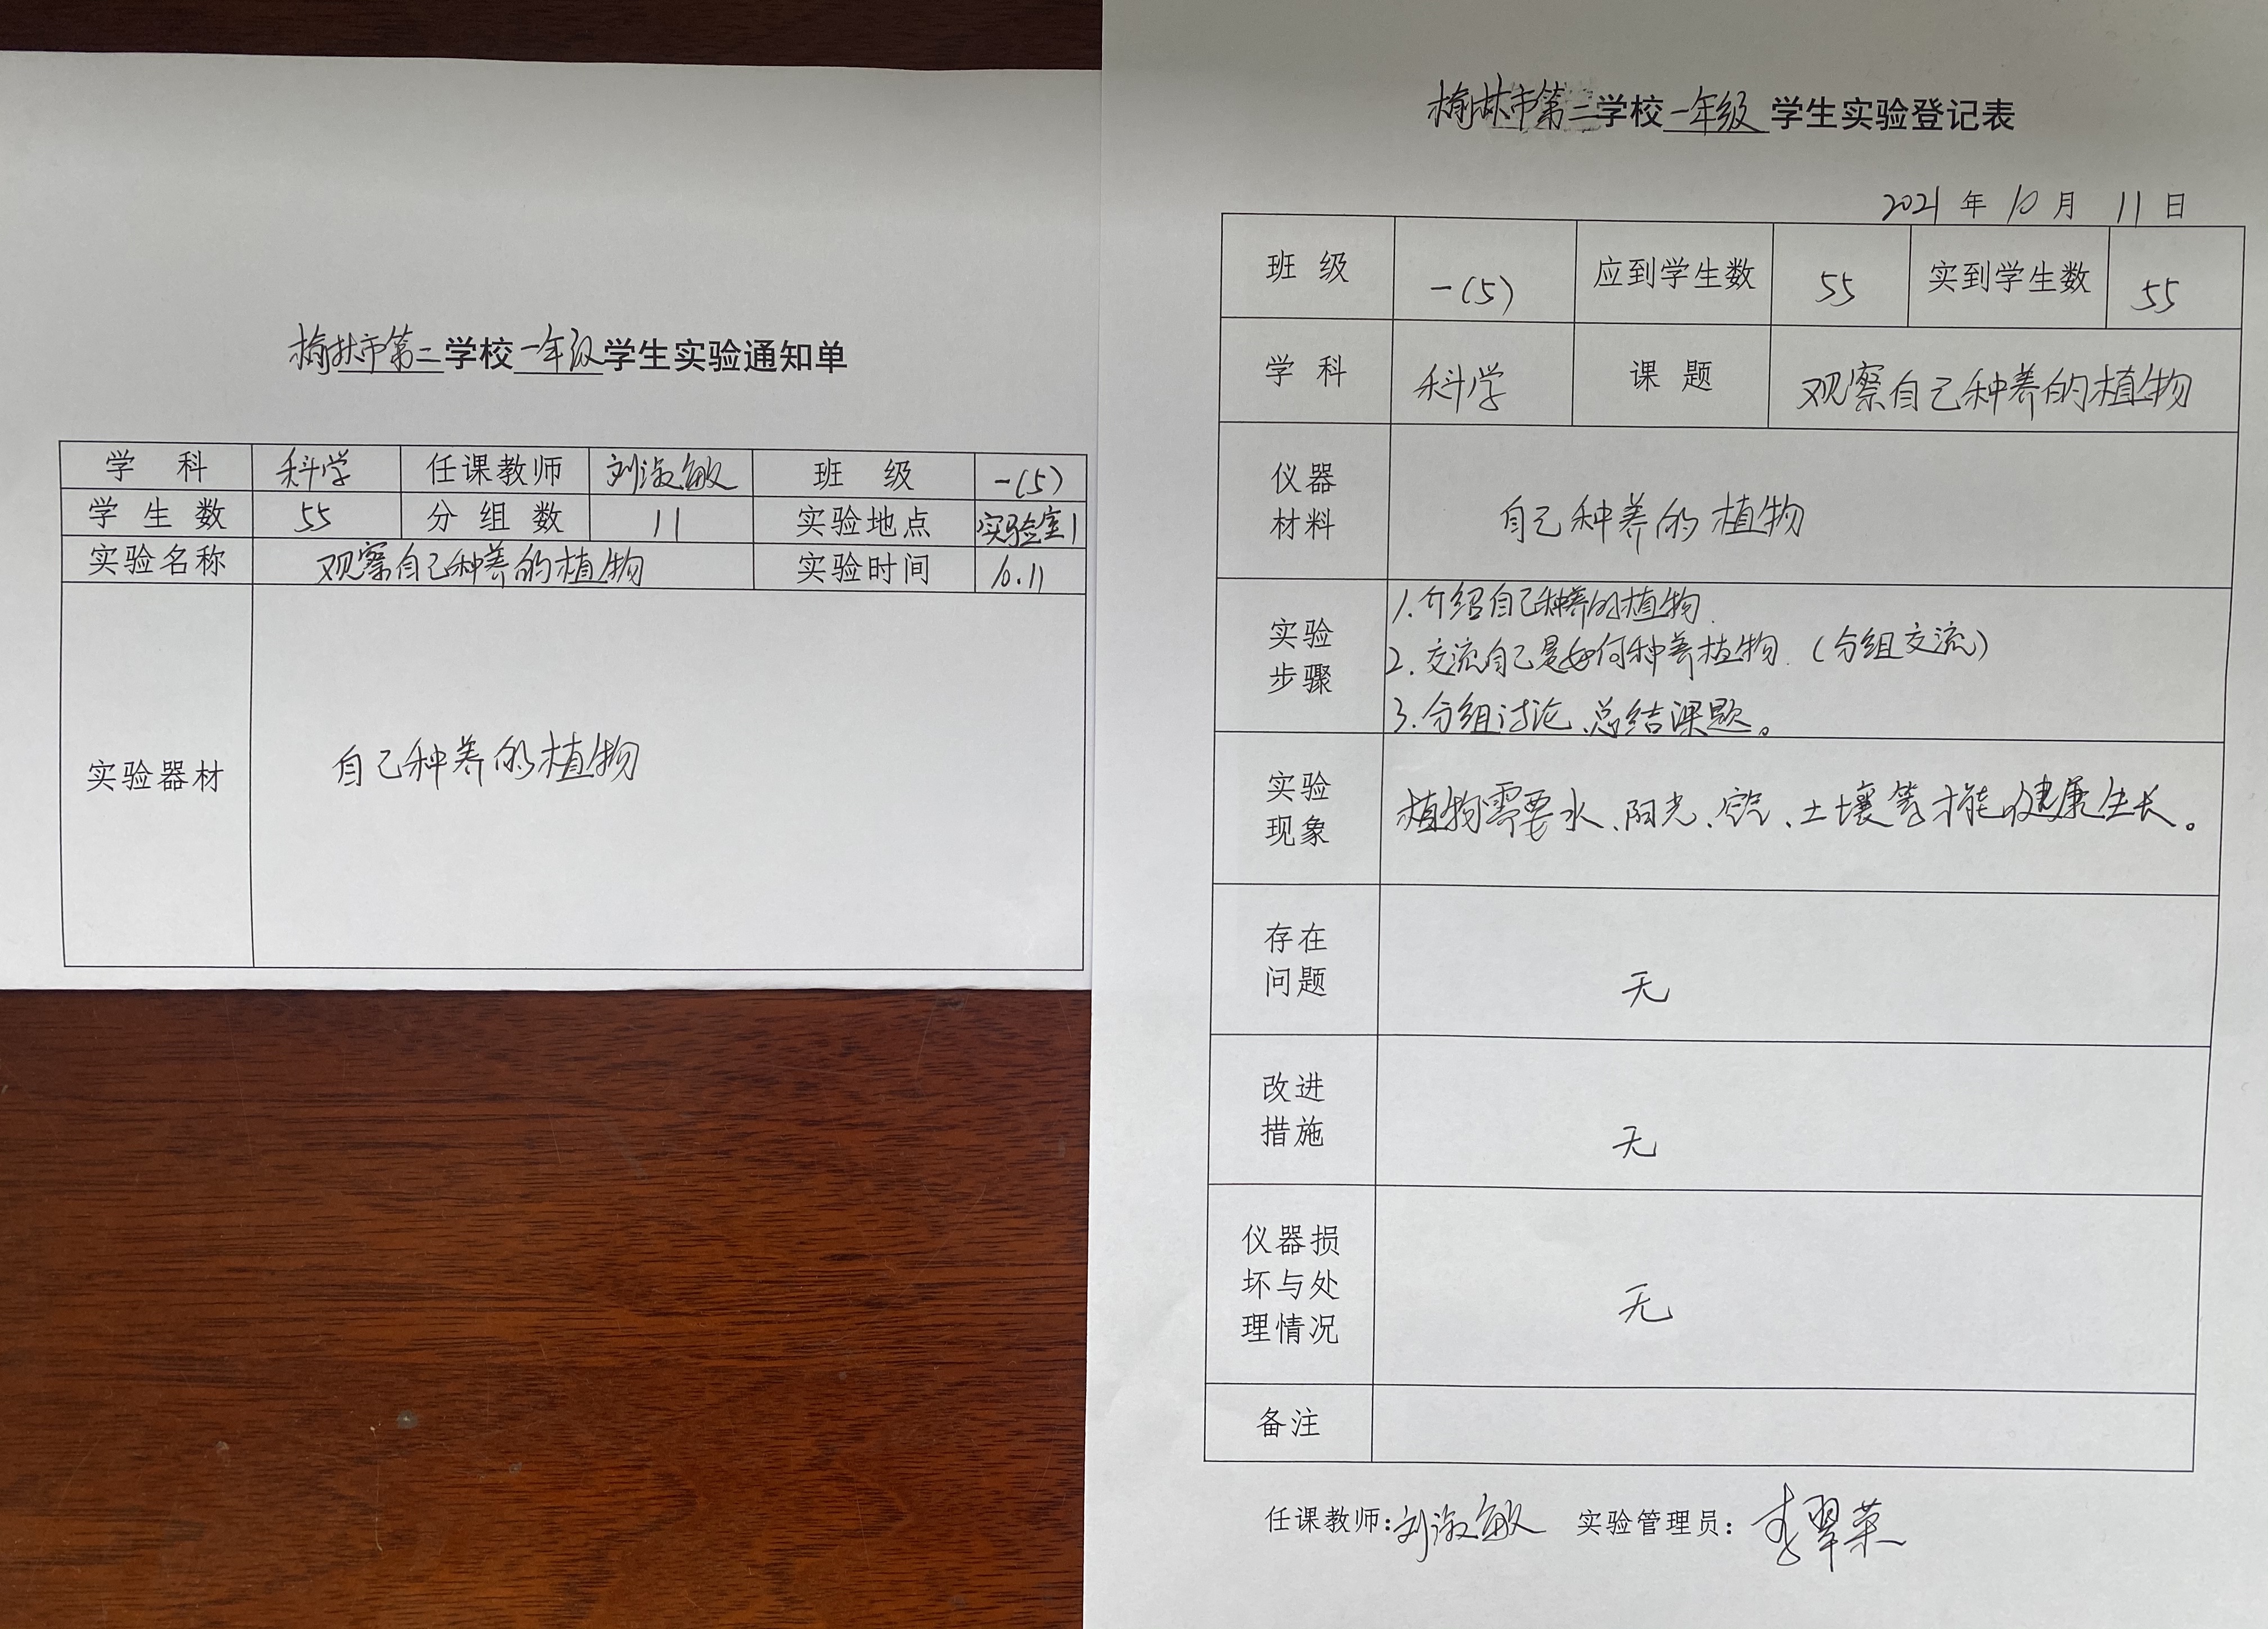 榆林市第二学校一年级学生实验通知单
学 科 科学 任课教师 刘淑敏 班 级 一(5)
学 生 数 55 分 组 数 11 实验地点 实验室1
实验名称 观察自己种养的植物 实验时间 10.11
实验器材 自己种养的植物
榆林市第二学校一年级 学生实验登记表
2021 年 10 月 11 日
班 级 一(5) 应到学生数 55 实到学生数 55
学 科 科学 课 题 观察自己种养的植物
仪器
材料
自己种养的植物
实验
步骤
1.介绍自己种养的植物.
2.交流自己是如何种养植物.(分组交流)
3.分组讨论、总结课题。
实验
现象
植物需要水、阳光、空气、土壤等才能健康生长。
存在
问题
无
改进
措施
无
仪器损
坏与处
理情况
无
备注
任课教师:刘淑敏 实验管理员:李翠荣